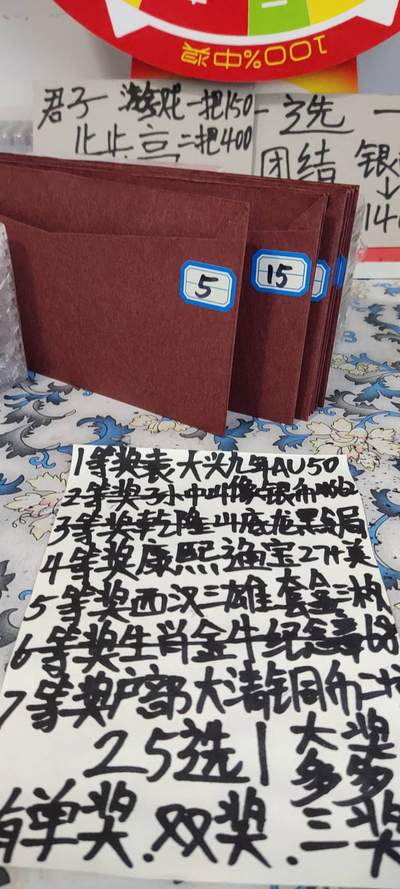 100%中奖
君子 游戏一把150
二把400
一选一
团结 银
140
5
15
1等奖袁大头九年AU50
2等奖孙中山像银币
3等奖乾隆
4等奖康熙通宝27
5等奖西汉三雄套盒三枚
6等奖生肖金牛纪念章68
7等奖户部大清铜币二十
25选1 大奖多多
有单奖.双奖.三奖